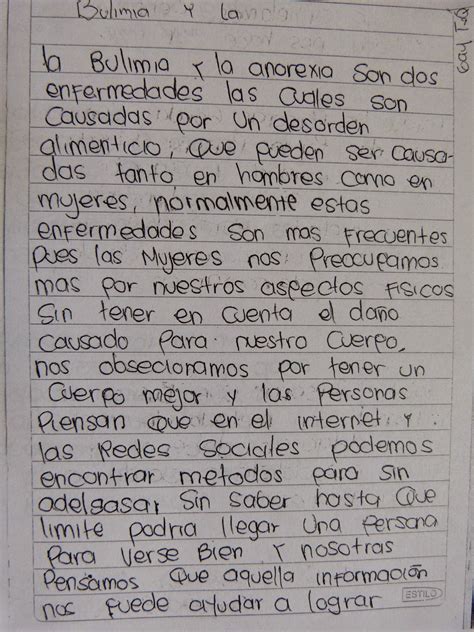 Bulimia y la
la Bulimia y la anorexia son dos
enfermedades las cuales son
causadas por un desorden
alimenticio, que pueden ser causa-
das tanto en hombres como en
mujeres, normalmente estas
enfermedades son mas frecuentes
pues las Mujeres nos Preocupamos
mas por nuestros aspectos Fisicos
sin tener en cuenta el daño
causado para nuestro cuerpo,
nos obsecionamos por tener un
cuerpo mejor y las Personas
piensan que en el internet y
las Redes sociales podemos
encontrar metodos para sin
adelgasar, sin saber hasta que
limite podria llegar una Persona
para verse Bien y nosotras
Pensamos que aquella información
nos puede ayudar a lograr
ESTILO